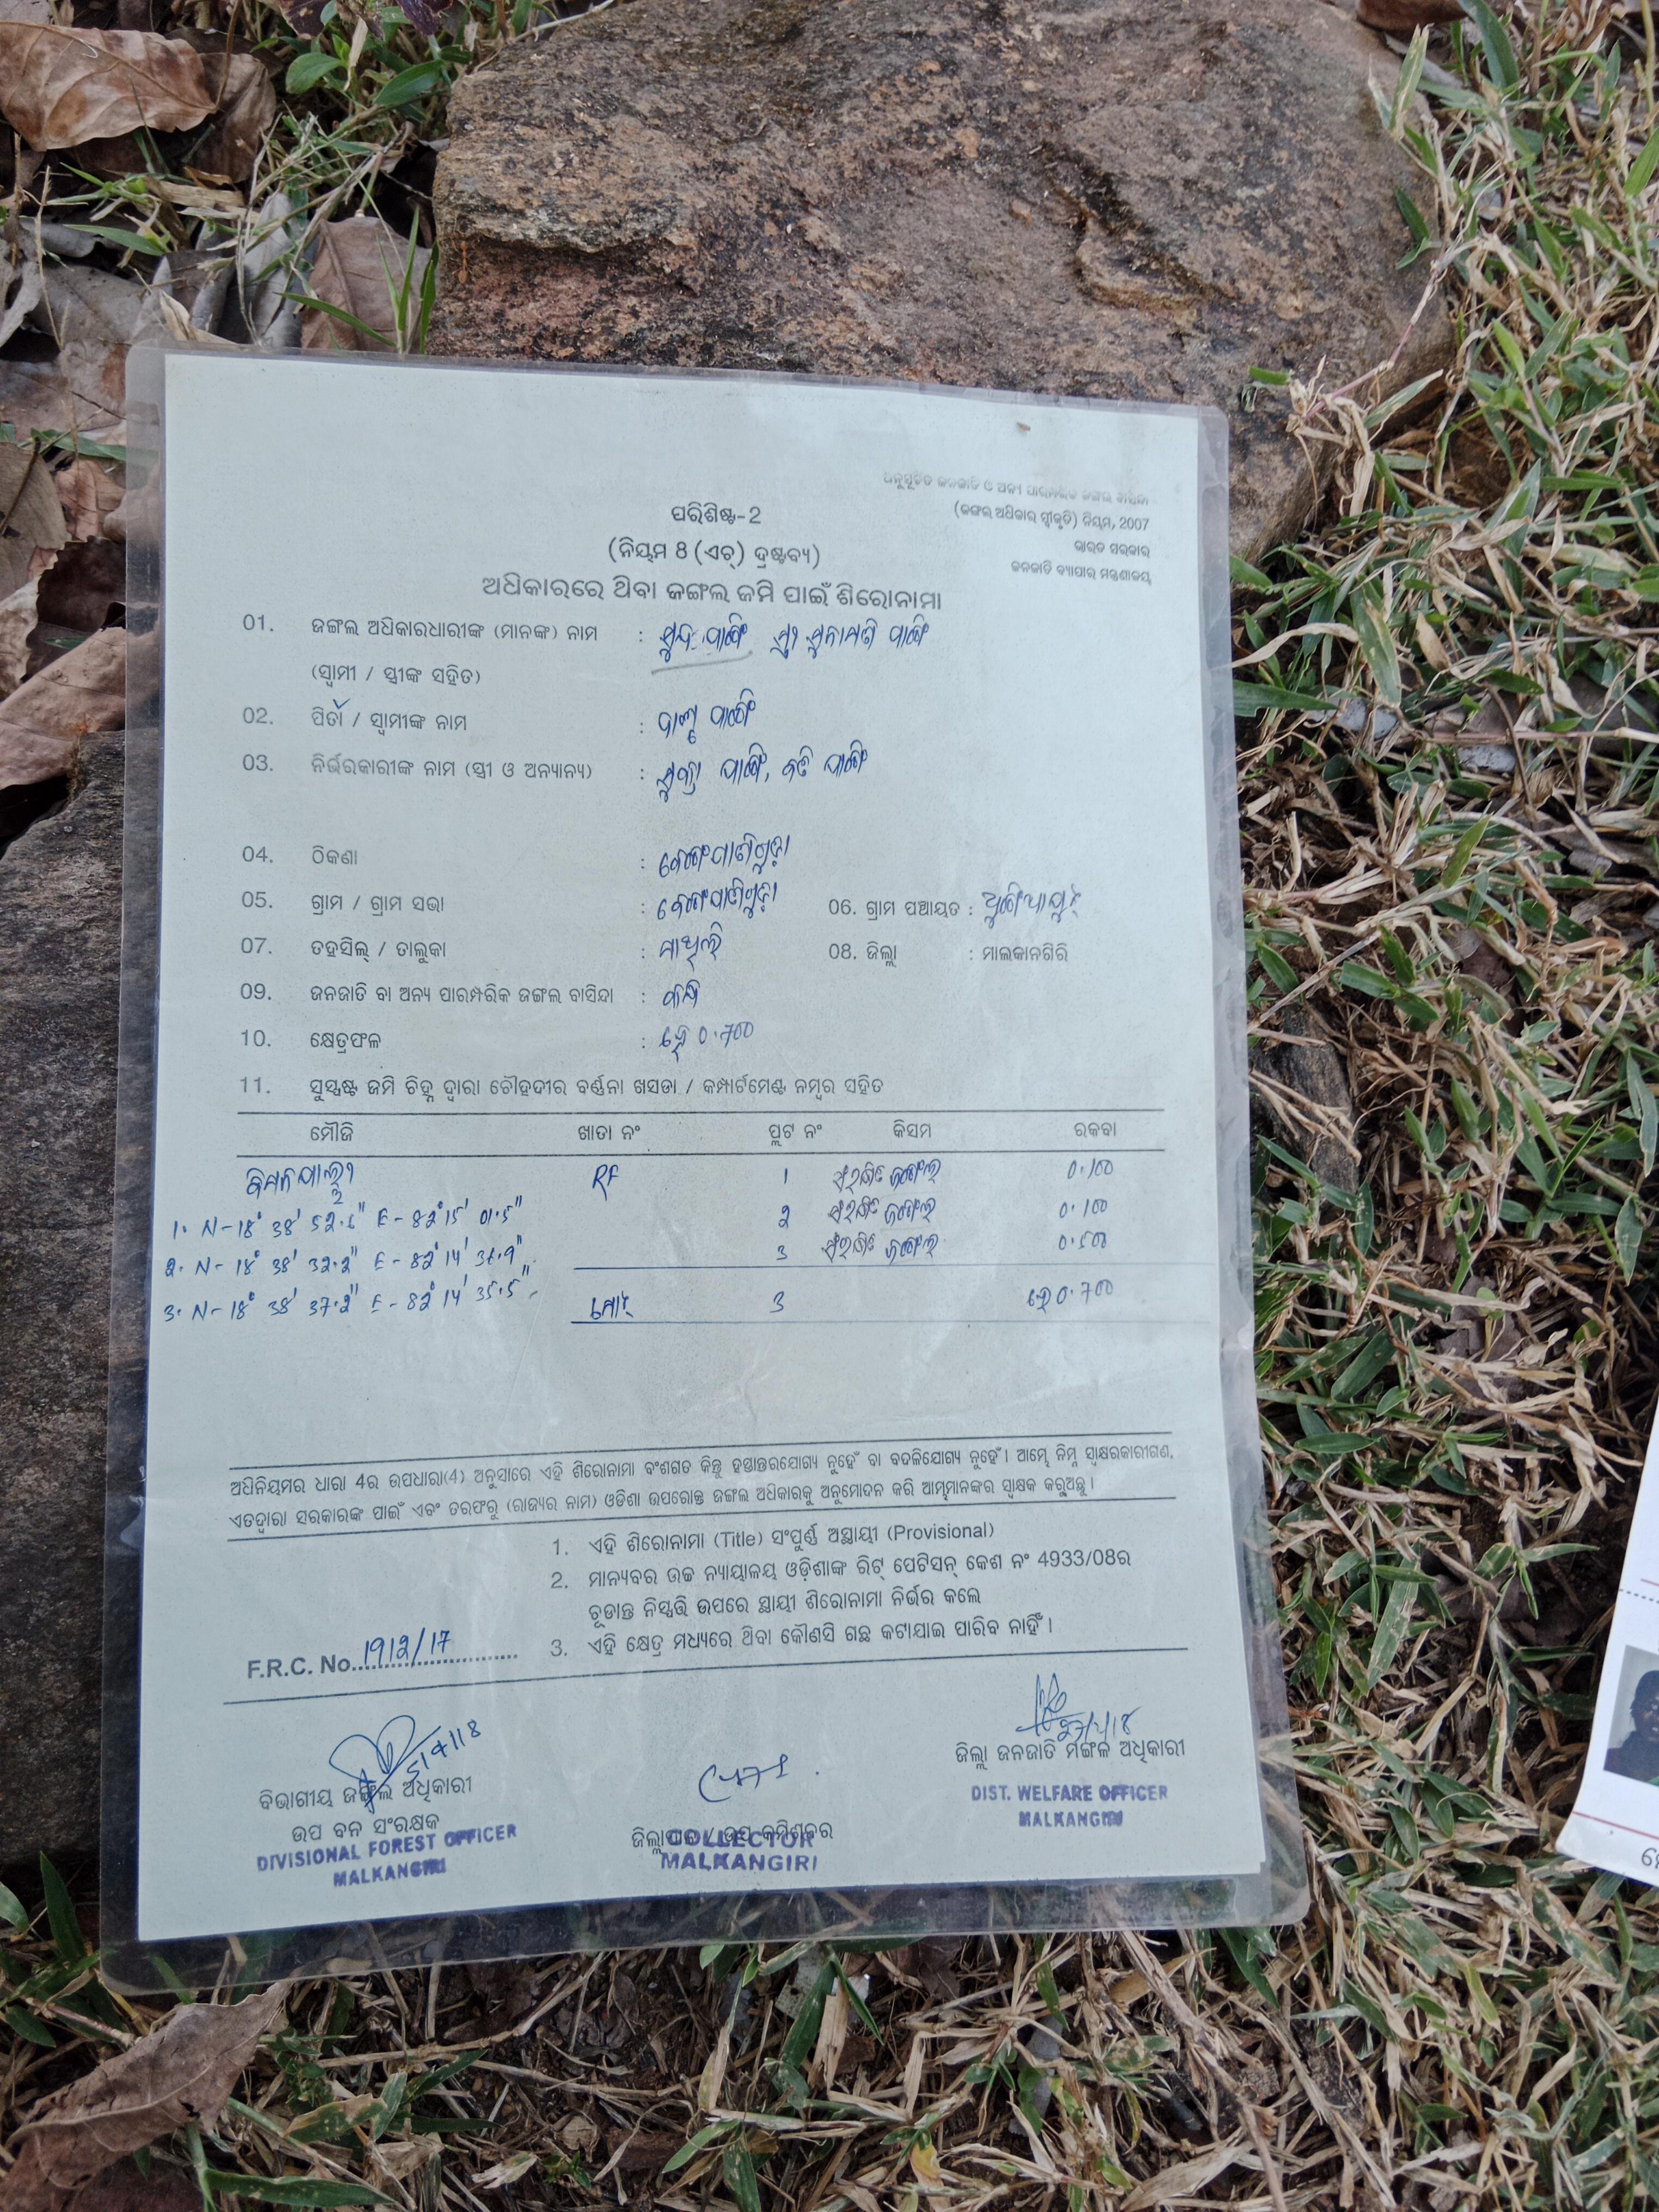 ଅନୁସୂଚିତ ଜନଜାତି ଓ ଅନ୍ୟ ପାରମ୍ପରିକ ଜଙ୍ଗଲ ବାସିନ୍ଦା
(ଜଙ୍ଗଲ ଅଧିକାର ସ୍ୱୀକୃତି) ନିୟମ, 2007
ଭାରତ ସରକାର
ଜନଜାତି ବ୍ୟାପାର ମନ୍ତ୍ରଣାଳୟ
ପରିଶିଷ୍ଟ-2
(ନିୟମ 8 (ଏଚ୍) ଦ୍ରଷ୍ଟବ୍ୟ)
ଅଧିକାରରେ ଥିବା ଜଙ୍ଗଲ ଜମି ପାଇଁ ଶିରୋନାମା
01. ଜଙ୍ଗଲ ଅଧିକାରଧାରୀଙ୍କ (ମାନଙ୍କ) ନାମ :
(ସ୍ୱାମୀ / ସ୍ତ୍ରୀଙ୍କ ସହିତ)
02. ପିତା / ସ୍ୱାମୀଙ୍କ ନାମ :
03. ନିର୍ଭରକାରୀଙ୍କ ନାମ (ସ୍ତ୍ରୀ ଓ ଅନ୍ୟାନ୍ୟ) :
04. ଠିକଣା :
05. ଗ୍ରାମ / ଗ୍ରାମ ସଭା : 06. ଗ୍ରାମ ପଞ୍ଚାୟତ :
07. ତହସିଲ୍ / ତାଲୁକା : ମାଥିଲି 08. ଜିଲ୍ଲା : ମାଲକାନଗିରି
09. ଜନଜାତି ବା ଅନ୍ୟ ପାରମ୍ପରିକ ଜଙ୍ଗଲ ବାସିନ୍ଦା :
10. କ୍ଷେତ୍ରଫଳ : ହେ 0.700
11. ସୁସ୍ପଷ୍ଟ ଜମି ଚିହ୍ନ ଦ୍ୱାରା ଚୌହଦୀର ବର୍ଣ୍ଣନା ଖସଡା / କମ୍ପାର୍ଟମେଣ୍ଟ ନମ୍ବର ସହିତ
ମୌଜି ଖାତା ନଂ ପ୍ଲଟ ନଂ କିସମ ରକବା
RF 1 ଜଙ୍ଗଲ 0.100
1. N-18° 38' E-82° 15' 01.5" 2 ଜଙ୍ଗଲ 0.100
2. N-18° 38' 32.2" E-82° 14' 3 ଜଙ୍ଗଲ 0.500
3. N-18° 38' 37.2" E-82° 14' 35.5" ମୋଟ 3 ହେ 0.700
ଅଧିନିୟମର ଧାରା 4ର ଉପଧାରା(4) ଅନୁସାରେ ଏହି ଶିରୋନାମା ବଂଶଗତ କିନ୍ତୁ ହସ୍ତାନ୍ତରଯୋଗ୍ୟ ନୁହେଁ ବା ବଦଳିଯୋଗ୍ୟ ନୁହେଁ। ଆମ୍ଭେ ନିମ୍ନ ସ୍ୱାକ୍ଷରକାରୀଗଣ,
ଏତଦ୍ୱାରା ସରକାରଙ୍କ ପାଇଁ ଏବଂ ତରଫରୁ (ରାଜ୍ୟର ନାମ) ଓଡିଶା ଉପରୋକ୍ତ ଜଙ୍ଗଲ ଅଧିକାରକୁ ଅନୁମୋଦନ କରି ଆମ୍ଭମାନଙ୍କର ସ୍ୱାକ୍ଷକ କରୁଅଛୁ।
1. ଏହି ଶିରୋନାମା (Title) ସଂପୂର୍ଣ ଅସ୍ଥାୟୀ (Provisional)
2. ମାନ୍ୟବର ଉଚ୍ଚ ନ୍ୟାୟାଳୟ ଓଡ଼ିଶାଙ୍କ ରିଟ୍ ପେଟିସନ୍ କେଶ ନଂ 4933/08ର
ଚୂଡାନ୍ତ ନିସ୍ପତ୍ତି ଉପରେ ସ୍ଥାୟୀ ଶିରୋନାମା ନିର୍ଭର କଲେ
3. ଏହି କ୍ଷେତ୍ର ମଧ୍ୟରେ ଥିବା କୌଣସି ଗଛ କଟାଯାଇ ପାରିବ ନାହିଁ।
F.R.C. No. 1912/17
5/4/18
ବିଭାଗୀୟ ଜଙ୍ଗଲ ଅଧିକାରୀ
ଉପ ବନ ସଂରକ୍ଷକ
DIVISIONAL FOREST OFFICER
MALKANGIRI
ଜିଲ୍ଲାପାଳ / ଉପ କମିଶନର
COLLECTOR
MALKANGIRI
ଜିଲ୍ଲା ଜନଜାତି ମଙ୍ଗଳ ଅଧିକାରୀ
DIST. WELFARE OFFICER
MALKANGIRI